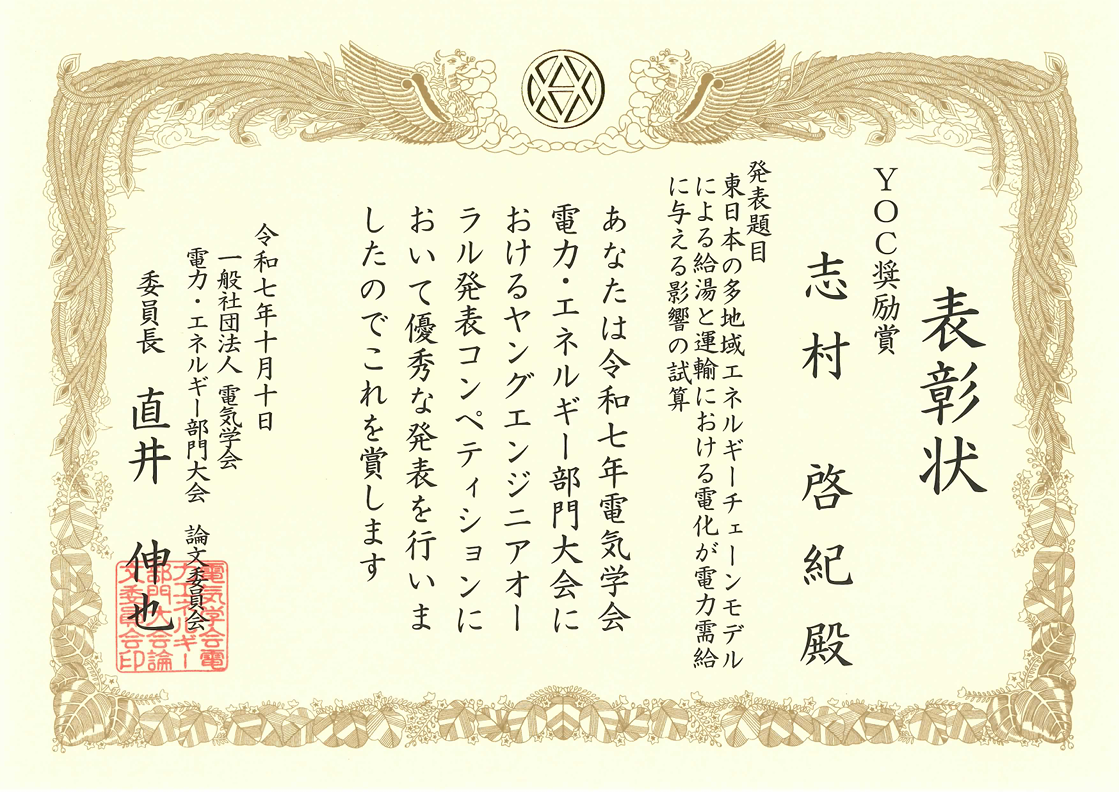 表彰状
YOC奨励賞
志村 啓紀 殿
発表題目
東日本の多地域エネルギーチェーンモデル
による給湯と運輸における電化が電力需給
に与える影響の試算
あなたは令和七年電気学会
電力・エネルギー部門大会に
おけるヤングエンジニアオー
ラル発表コンペティションに
おいて優秀な発表を行いま
したのでこれを賞します
令和七年十月十日
一般社団法人 電気学会
電力・エネルギー部門大会 論文委員会
委員長 直井 伸也
電気学会電
力エネルギー
部門大会論
文委員会印